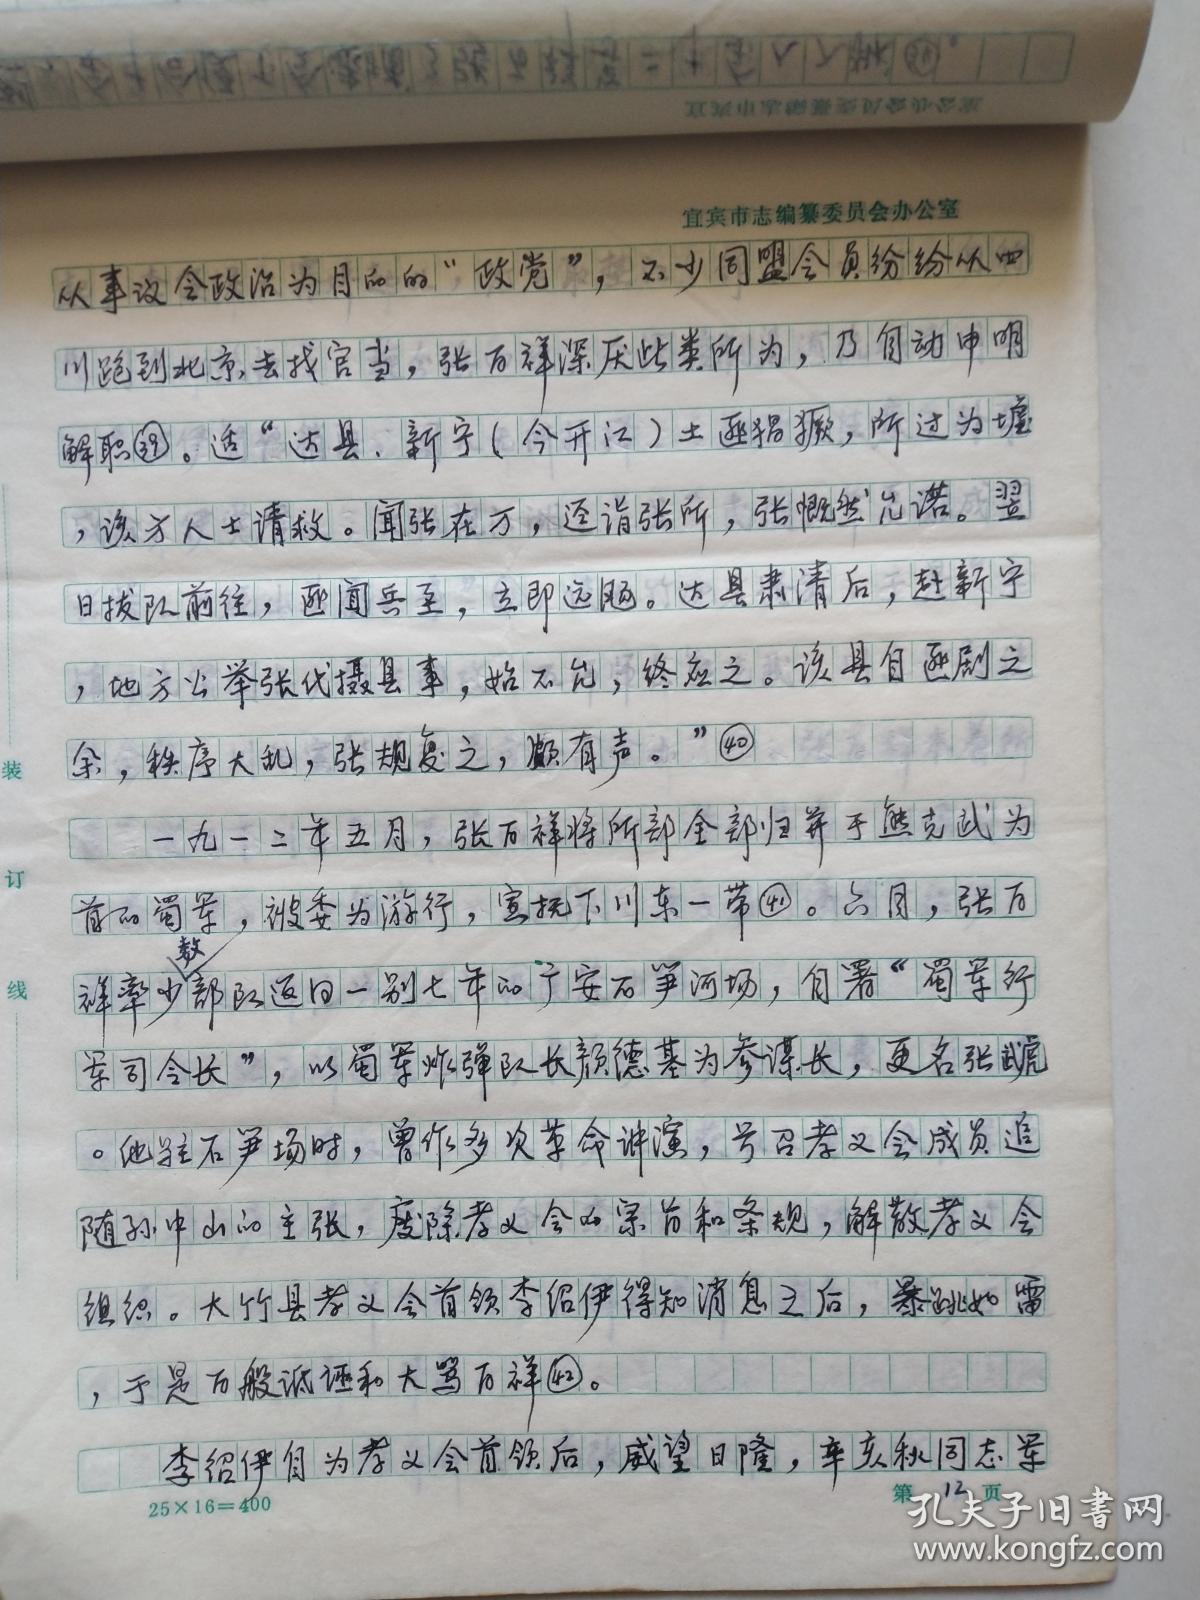 宜宾市志编纂委员会办公室
从事议会政治为目的的“政党”，不少同盟会员纷纷从四
川跑到北京去找官当，张百祥深厌此类所为，乃自动申明
解职㊴。适“达县、新宁（今开江）土匪猖獗，所过为墟
，该方人士请救。闻张在万，迳诣张所，张慨然允诺。翌
日拔队前往，匪闻兵至，立即远飏。达县肃清后，赴新宁
，地方公举张代摄县事，始不允，终应之。该县自匪剧之
余，秩序大乱，张规复之，颇有声。”㊵
一九一二年五月，张百祥将所部全部归并于熊克武为
首的蜀军，被委为游行，宣抚下川东一带㊶。六月，张百
祥率少数部队返回一别七年的广安石笋河场，自署“蜀军行
军司令长”，以蜀军炸弹队长颜德基为参谋长，更名张武虎
。他驻石笋场时，曾作多次革命讲演，号召孝义会成员追
随孙中山的主张，废除孝义会的宗旨和条规，解散孝义会
组织。大竹县孝义会首领李绍伊得知消息之后，暴跳如雷
，于是百般诋诬和大骂百祥㊷。
李绍伊自为孝义会首领后，威望日隆，辛亥秋同志军
25×16=400
第 12 页
装
订
线
孔夫子旧书网
www.kongfz.com